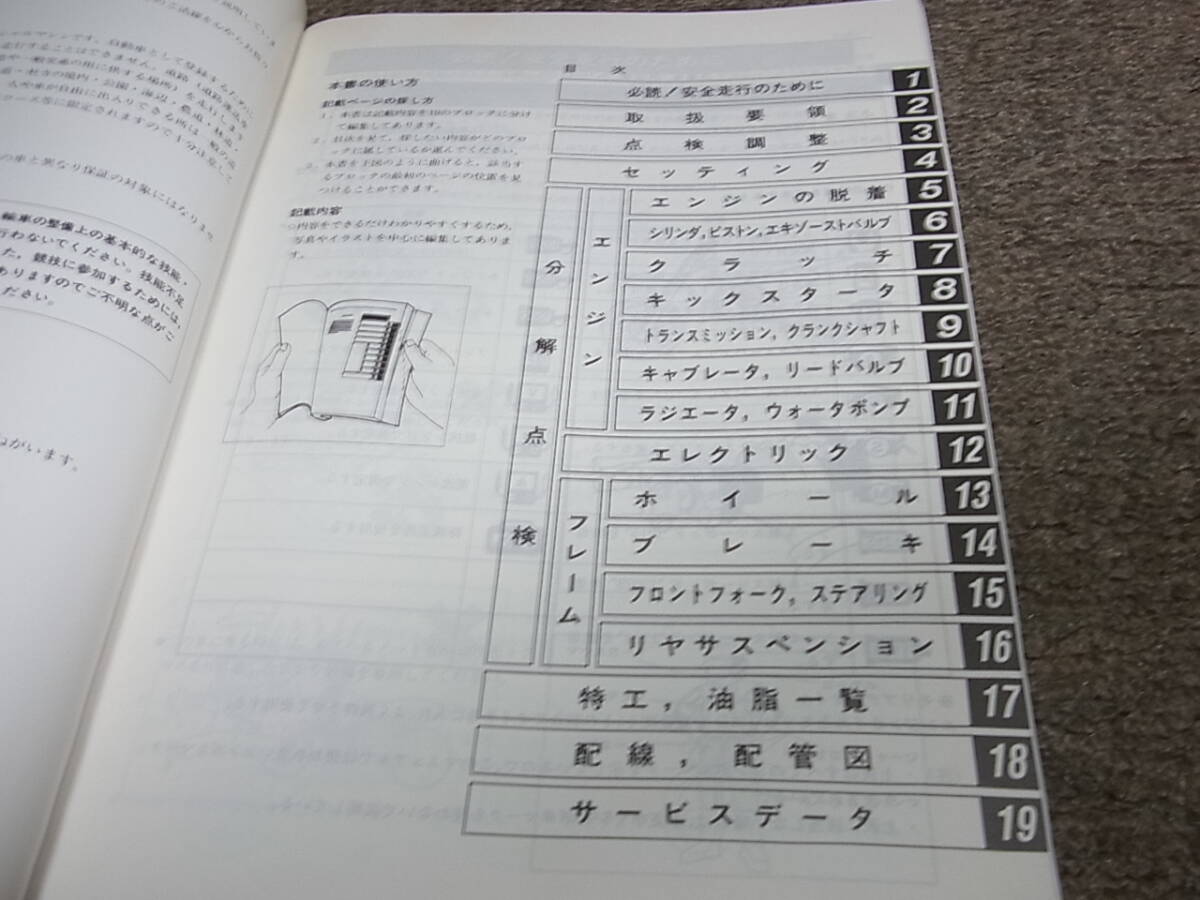 走行することはできません。道路(道路運送
の車と異なり保証の対象にはなりませ
輪車の整備上の基本的な技能,
行わないでください。技能不足
た,競技に参加するためには,
ありますのでご不明な点がご
ださい。
ねがいます。
本書の使い方
記載ページの探し方
て編集してあります。
2. 目次を見て,探したい内容がどのブロ
ックに属しているか選んでください。
3. 本書を下図のように曲げると,該当す
るブロックの最初のページの位置を見
つけることができます。
記載内容
○内容をできるだけわかりやすくするため,
写真やイラストを中心に編集してありま
す。
目 次
必読/安全走行のために 1
取扱要領 2
点検調整 3
セッティング 4
分解点検
エンジン
エンジンの脱着 5
シリンダ,ピストン,エキゾーストバルブ 6
クラッチ 7
キックスタータ 8
トランスミッション,クランクシャフト 9
キャブレータ,リードバルブ 10
ラジエータ,ウォータポンプ 11
エレクトリック 12
フレーム
ホイール 13
ブレーキ 14
フロントフォーク,ステアリング 15
リヤサスペンション 16
特工,油脂一覧 17
配線,配管図 18
サービスデータ 19